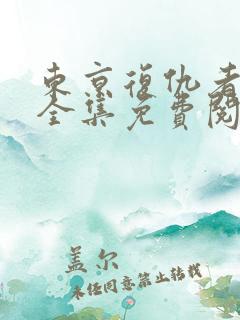 東京復仇者
全集免費閱
盖尔
未经同意禁止转载